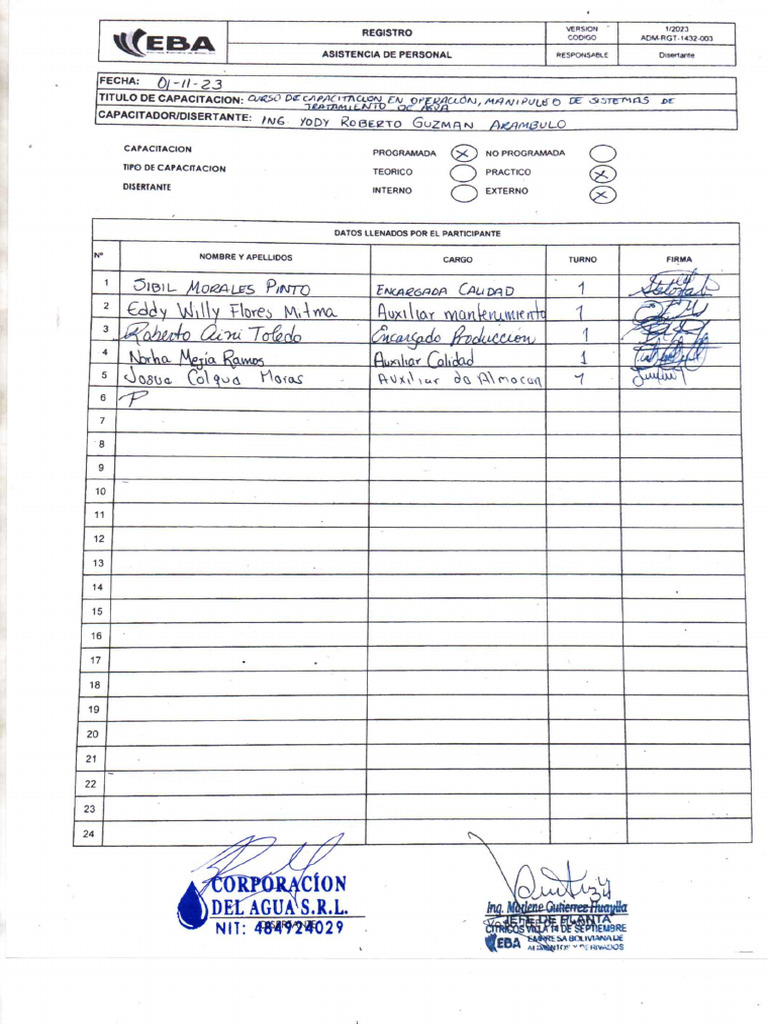 EBA
REGISTRO
ASISTENCIA DE PERSONAL
VERSION
CODIGO
1/2023
ADM-RGT-1432-003
RESPONSABLE
Disertante
FECHA: 01-11-23
TITULO DE CAPACITACION: CURSO DE CAPACITACION EN OPERACIÓN, MANIPULEO DE SISTEMAS DE
TRATAMIENTO DE AGUA
CAPACITADOR/DISERTANTE: ING. YODY ROBERTO GUZMAN ARAMBULO
CAPACITACION PROGRAMADA X NO PROGRAMADA
TIPO DE CAPACITACION TEORICO PRACTICO X
DISERTANTE INTERNO EXTERNO X
DATOS LLENADOS POR EL PARTICIPANTE
Nº NOMBRE Y APELLIDOS CARGO TURNO FIRMA
1 SIBIL MORALES PINTO ENCARGADA CALIDAD 1
2 Eddy Willy Flores Mitma Auxiliar mantenimiento 1
3 Roberto Toledo Encargado Producción 1
4 Norha Mejía Ramos Auxiliar Calidad 1
5 Josue Colque Auxiliar de Almacen 1
6 P
7
8
9
10
11
12
13
14
15
16
17
18
19
20
21
22
23
24
CORPORACION
DEL AGUA S.R.L.
NIT: 484924029
Ing. Marlene Gutierrez Huaylla
JEFE DE PLANTA
CITRICOS VILLA 14 DE SEPTIEMBRE
EBA EMPRESA BOLIVIANA DE
ALIMENTOS Y DERIVADOS